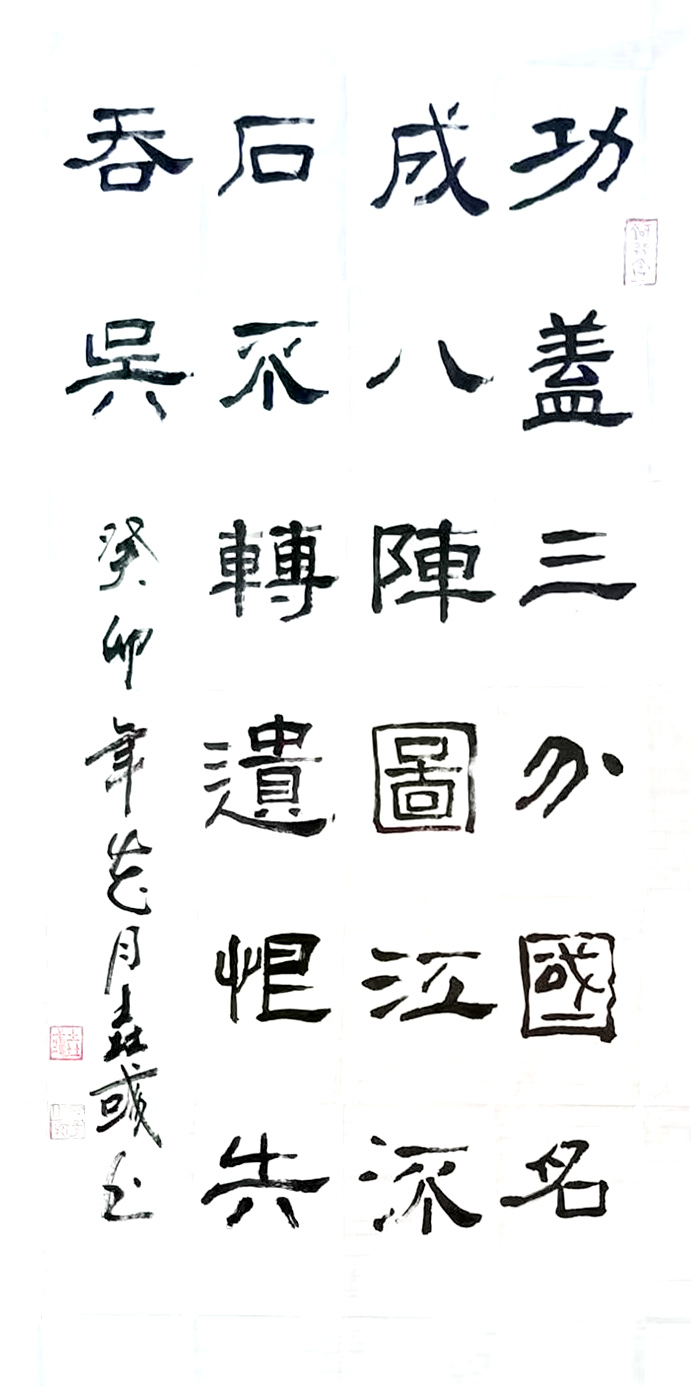 功盖三分國名
成八陣圖江流
石不轉遺恨失
吞吳 癸卯年花月垚彧书